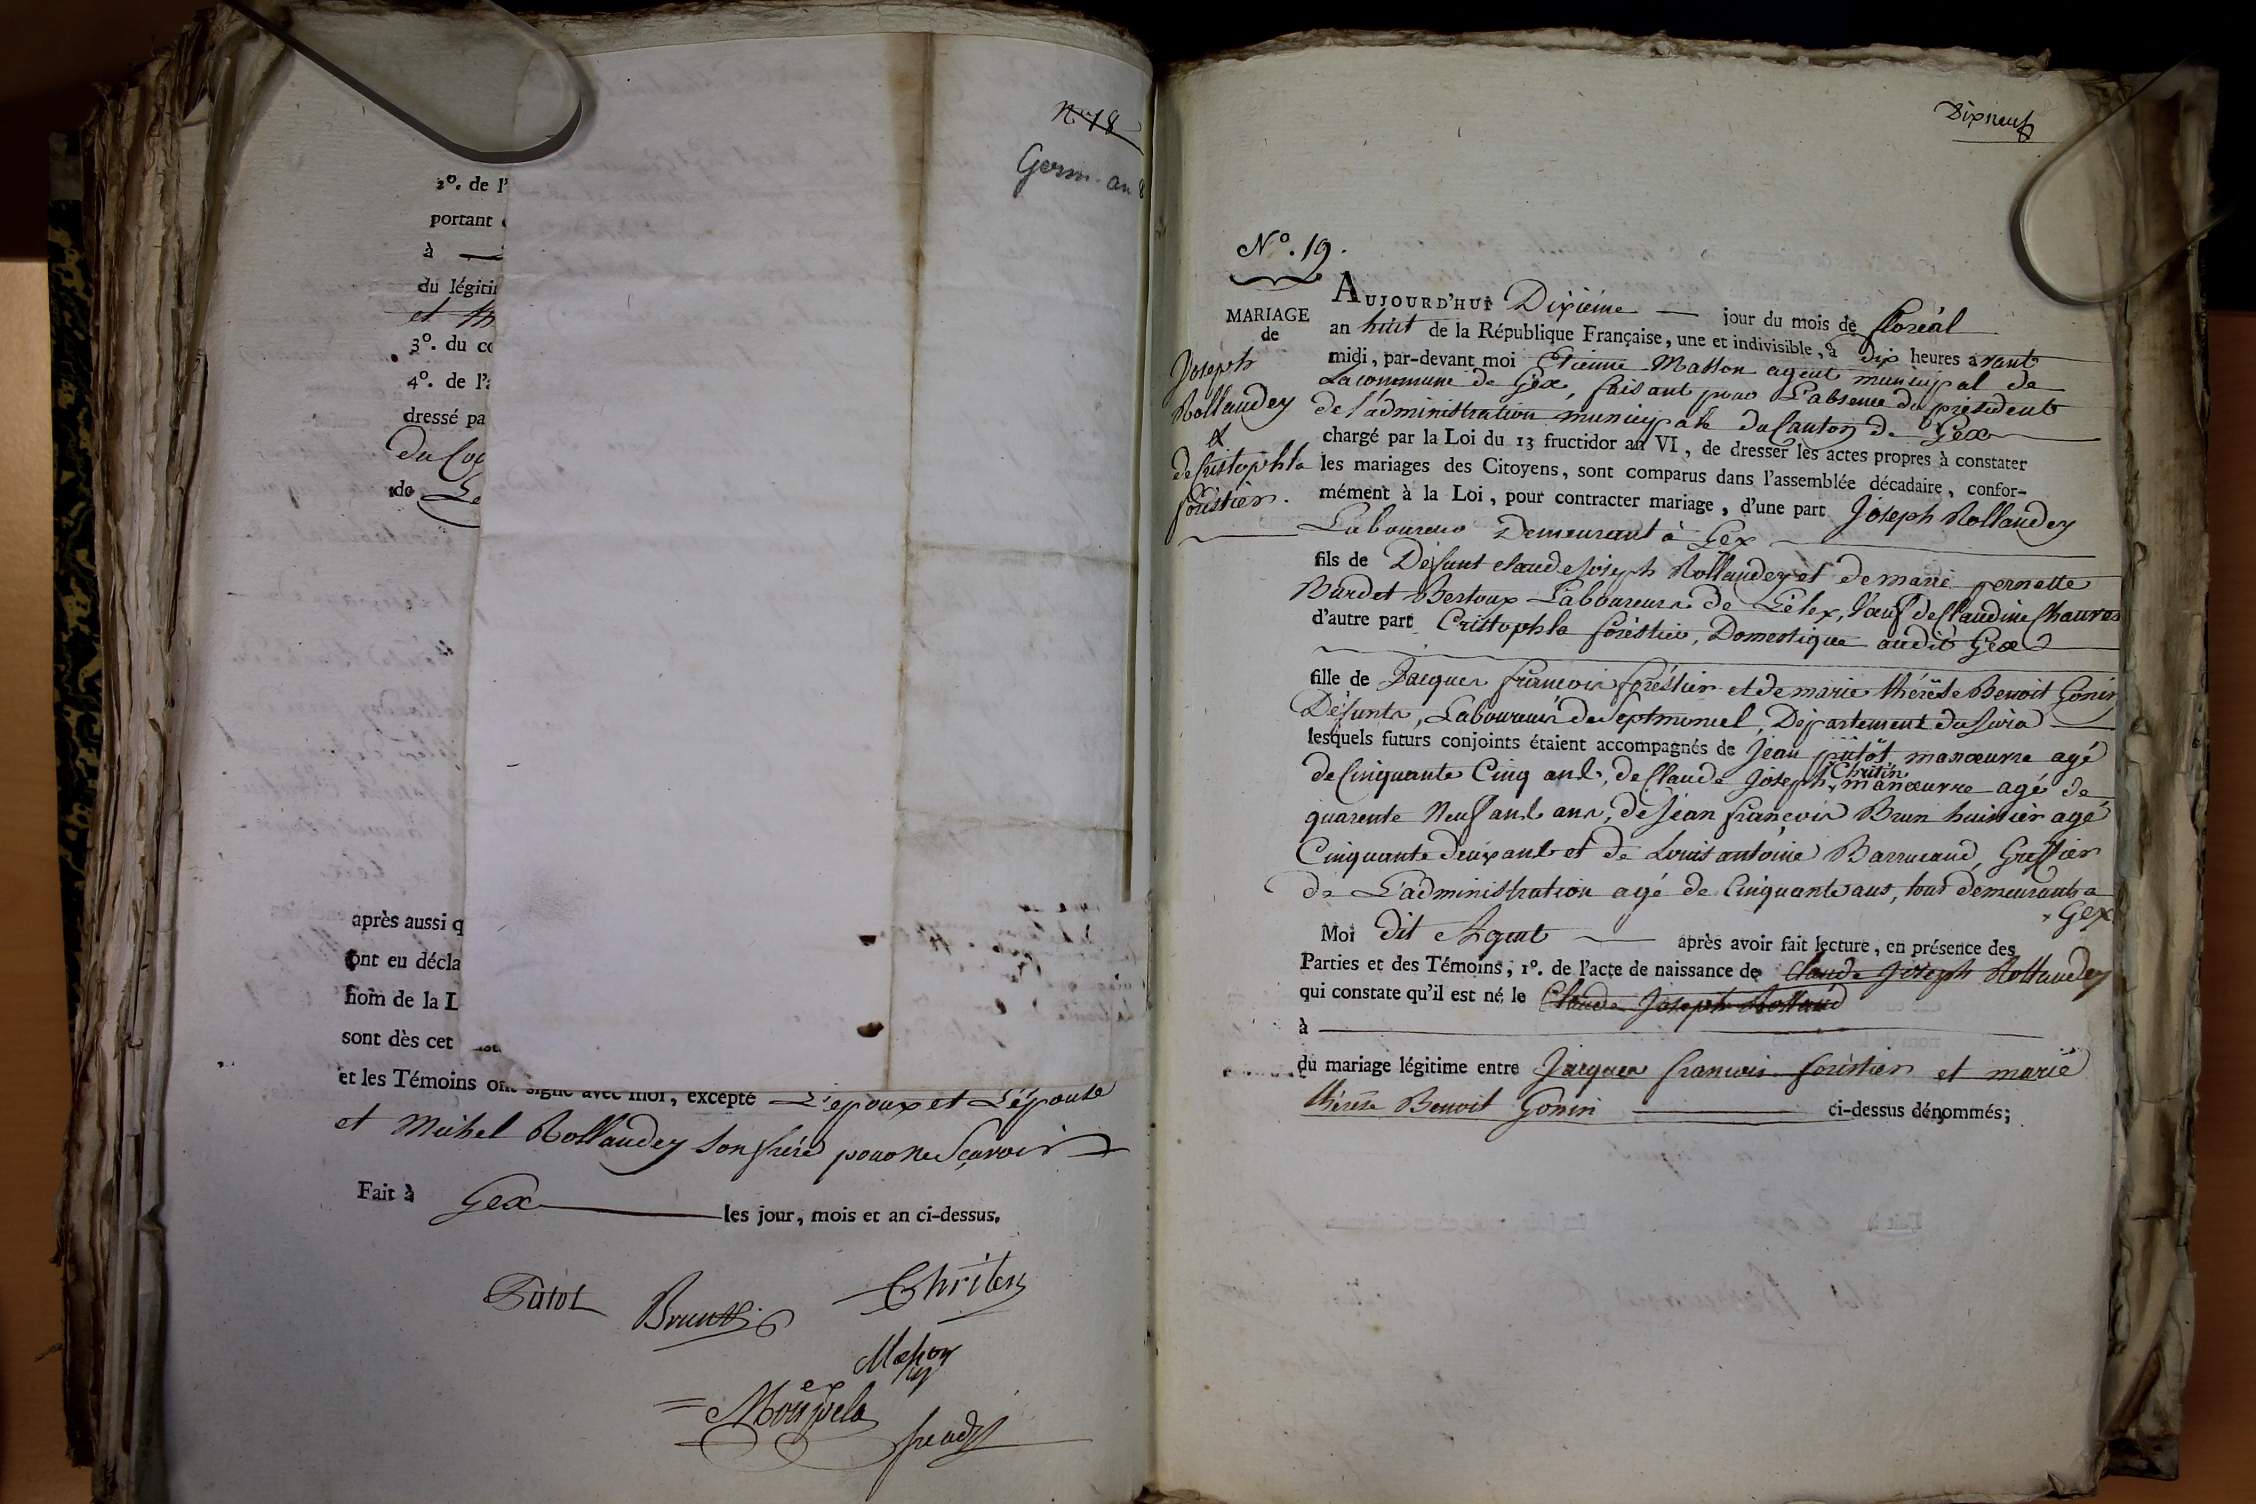 N° 18
Germ. an 8
2°. de l'
portant
à
du légiti
et
3°. du co
4°. de l'a
dressé pa
du
de
après aussi q
ont eu décla
nom de la L
sont dès cet
et les Témoins ont signé avec moi, excepté L'epoux et L'épouse
et Michel Rollandey son frére pour ne Sçavoir
Fait à Gex les jour, mois et an ci-dessus.
Pütot Brun Chriten
Masson
Dixneuf
N°. 19.
MARIAGE
de
Joseph
Rollandey
&
de Cristophla
forestier.
AUJOURD'HUI Dixiéme jour du mois de floréal
an huit de la République Française, une et indivisible, à dix heures avant
midi, par-devant moi Etienne Masson agent municipal de
La commune de Gex, faisant pour L'absence du président
de l'administration municipale du Canton de Gex
chargé par la Loi du 13 fructidor an VI, de dresser les actes propres à constater
les mariages des Citoyens, sont comparus dans l'assemblée décadaire, confor-
mément à la Loi, pour contracter mariage, d'une part Joseph Rollandey
Laboureur Demeurant à Gex
fils de Defunt claude Joseph Rollandey et de marie pernette
Burdet Bertoux Laboureurs de Lélex, Veuf de Claudine Chauvet
d'autre part Cristophla foréstier, Domestique audit Gex
fille de Jacques françois foréstier et de marie thérèse Benoit Gonin
Défunts, Laboureurs de Septmoncel, Département du Jura
lesquels futurs conjoints étaient accompagnés de Jean pütôt manœuvre agé
de Cinquante Cinq ans, de Claude Joseph Chritin manœuvre agé de
quarente Neuf ans ans, de Jean françois Brun huissier agé
Cinquante deux ans et de Louis antoine Barrucand, Greffier
de L'administration agé de Cinquante ans, tous demeurant a
Gex
Moi dit Agent après avoir fait lecture, en présence des
Parties et des Témoins, 1°. de l'acte de naissance de Claude Joseph Rollandey
qui constate qu'il est né le Claude Joseph Rolland
à
du mariage légitime entre Jacques francois foristier et marie
thérèse Benoit Gonin ci-dessus dénommés;